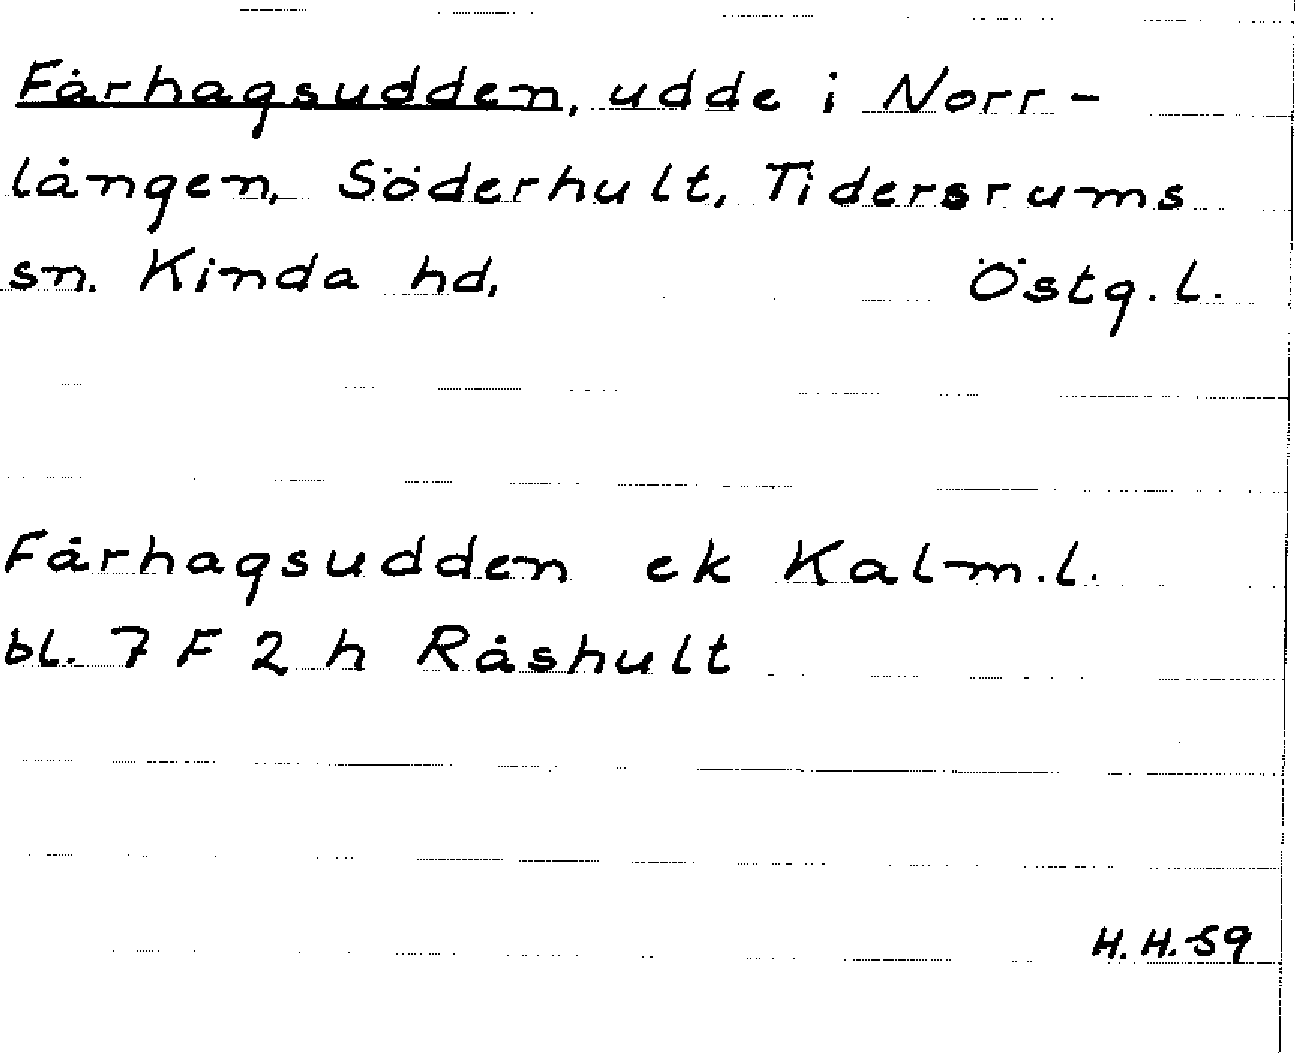 Fårhagsudden, udde i Norr-
lången, Söderhult, Tidersrums
sn. Kinda hd, Östg. l.
Fårhagsudden ek Kalm. l.
bl. 7 F 2 h Råshult
H. H. 59